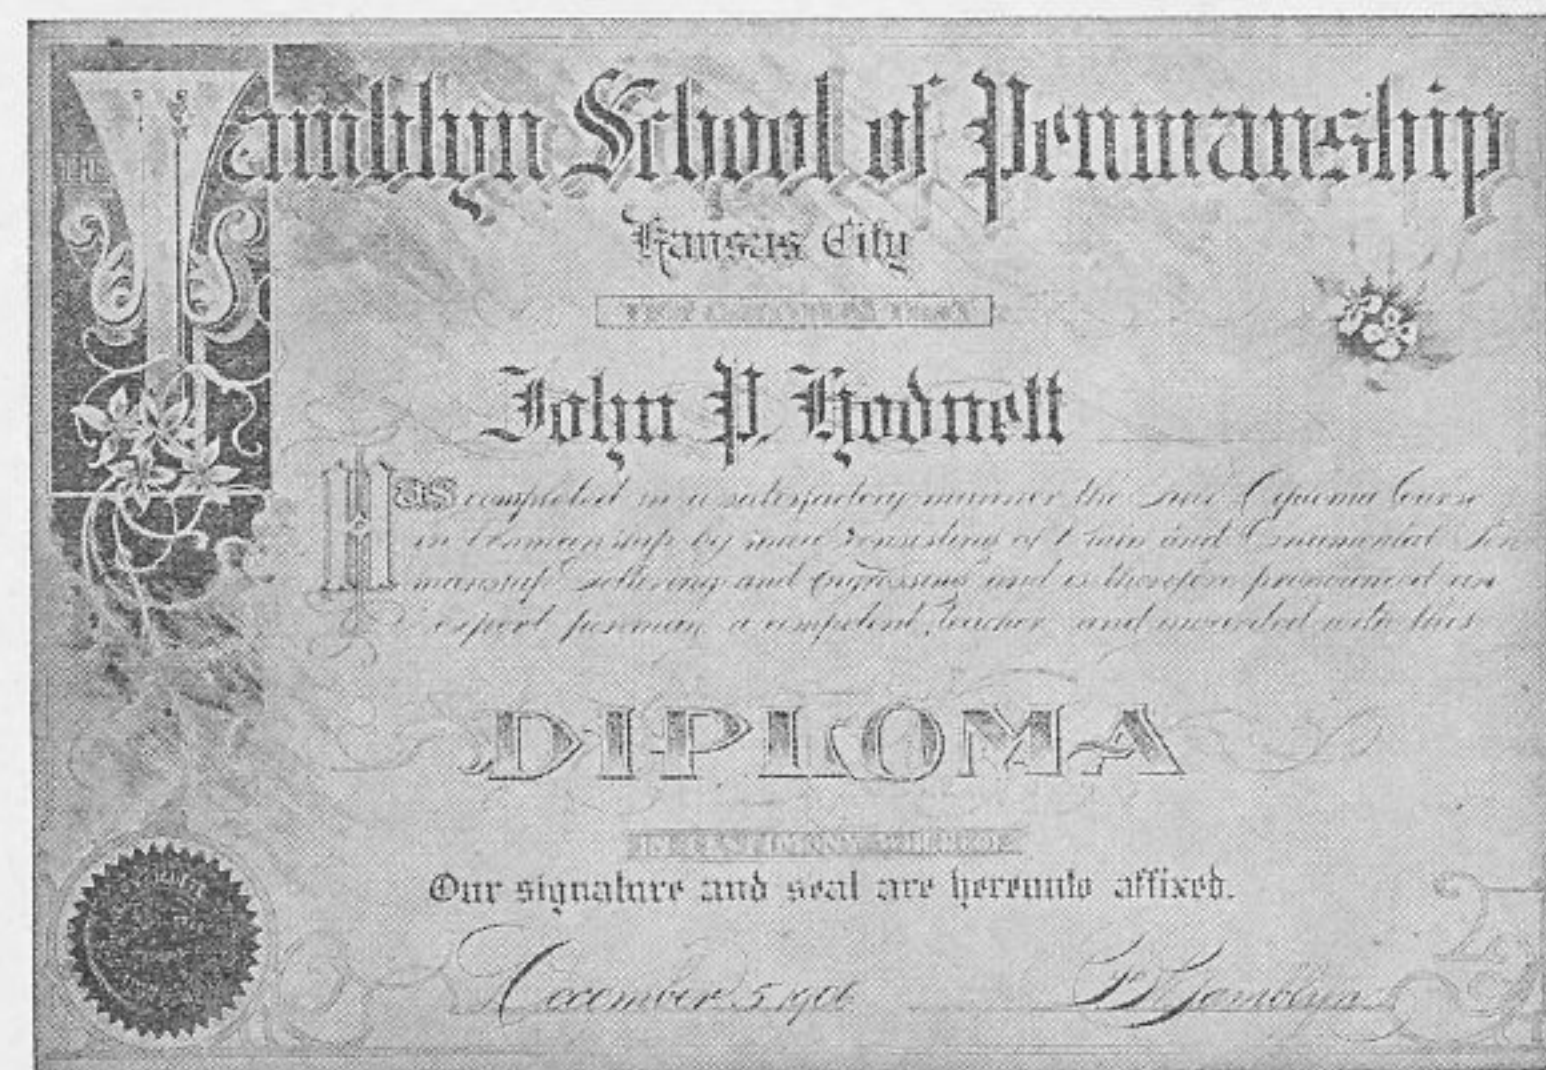 THE
Tamblyn School of Penmanship
Kansas City
John P. Hodnett
Has completed in a satisfactory manner the Diploma Course
in Penmanship by mail consisting of Plain and Ornamental Pen
manship Lettering and Engrossing and is therefore pronounced an
expert penman, a competent teacher and awarded with this
DIPLOMA
IN TESTIMONY WHEREOF
Our signature and seal are hereunto affixed.
December 5, 1906
F.W. Tamblyn